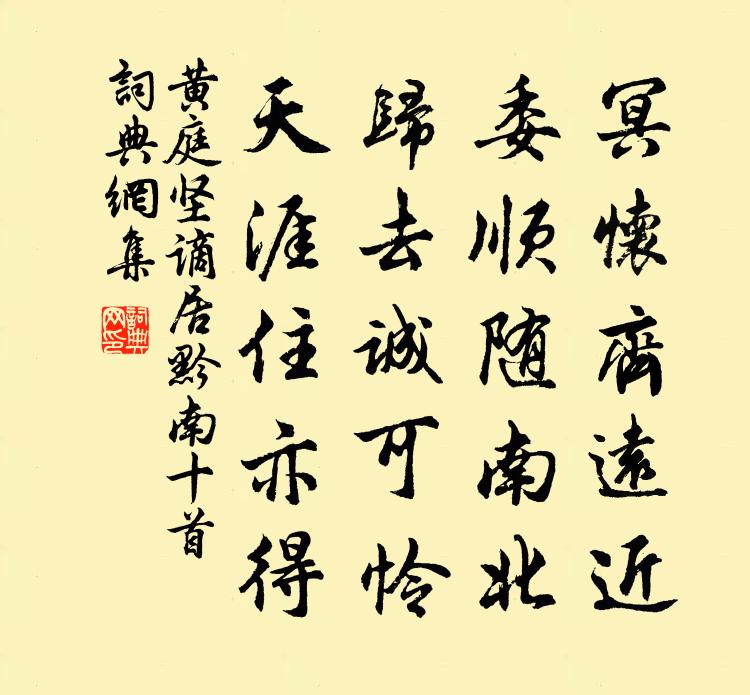 冥懷齊遠近
委順随南北
歸去诚可怜
天涯住亦得
黄庭坚谪居黔南十首
詞典網集
詞典
网印